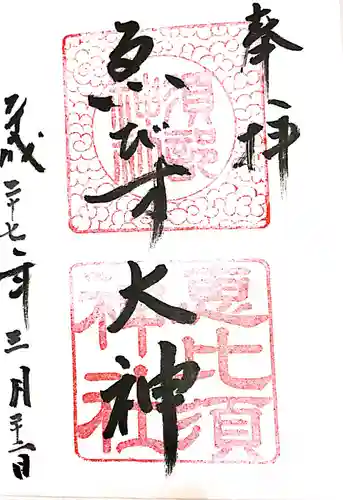 奉拝
須部神社
ゑびす
大神
恵比須神社
平成二十七年三月 日